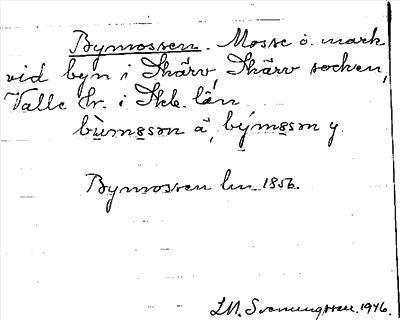 Bymossen. Mosse o. mark
vid byn i Skärv, Skärv socken,
Valle hr. i Skb. län
bỳmosson ä, býmosson y.
Bymossen lm 1856.
L.M. Svenungsson. 1946.